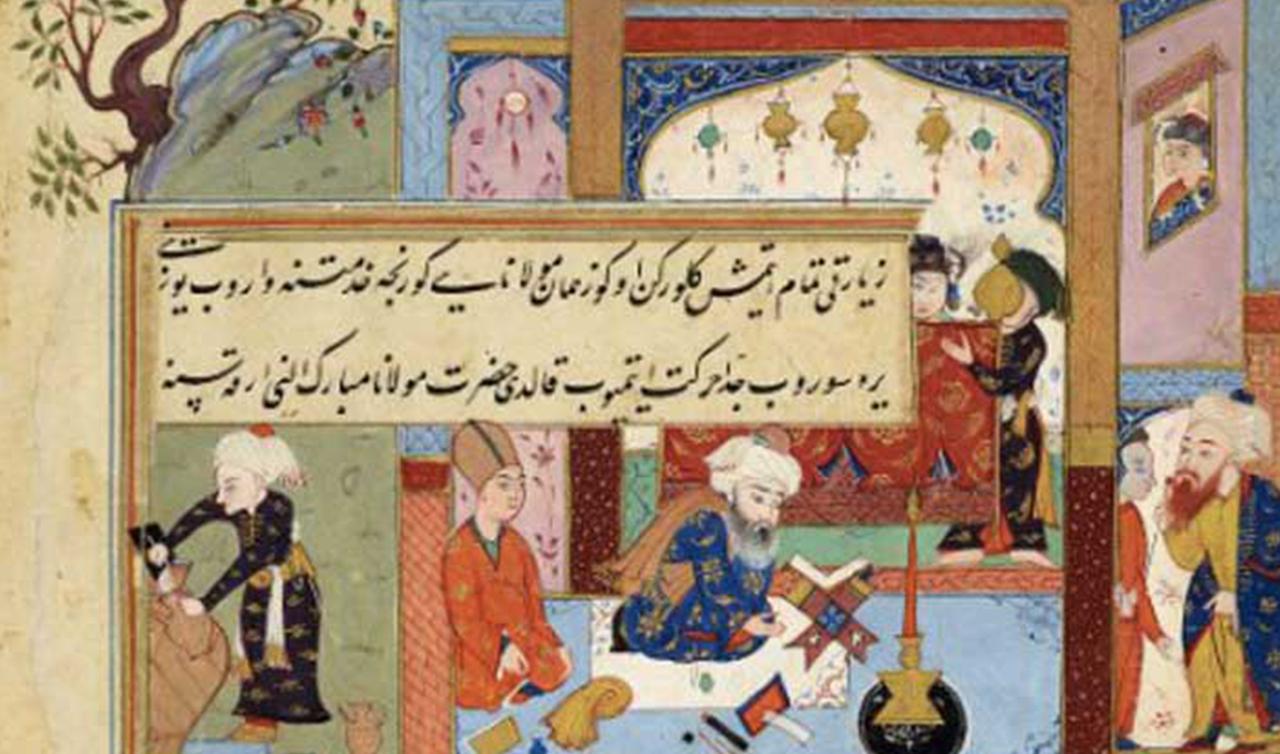 زیارتی تمام ایتمش کلورکن اوکوز همان مولانایی کورنجه خدمتنه واروب یوزینی
یره سوروب جدا حرکت ایتمیوب قالدی حضرت مولانا مبارک النی ارقه‌سینه